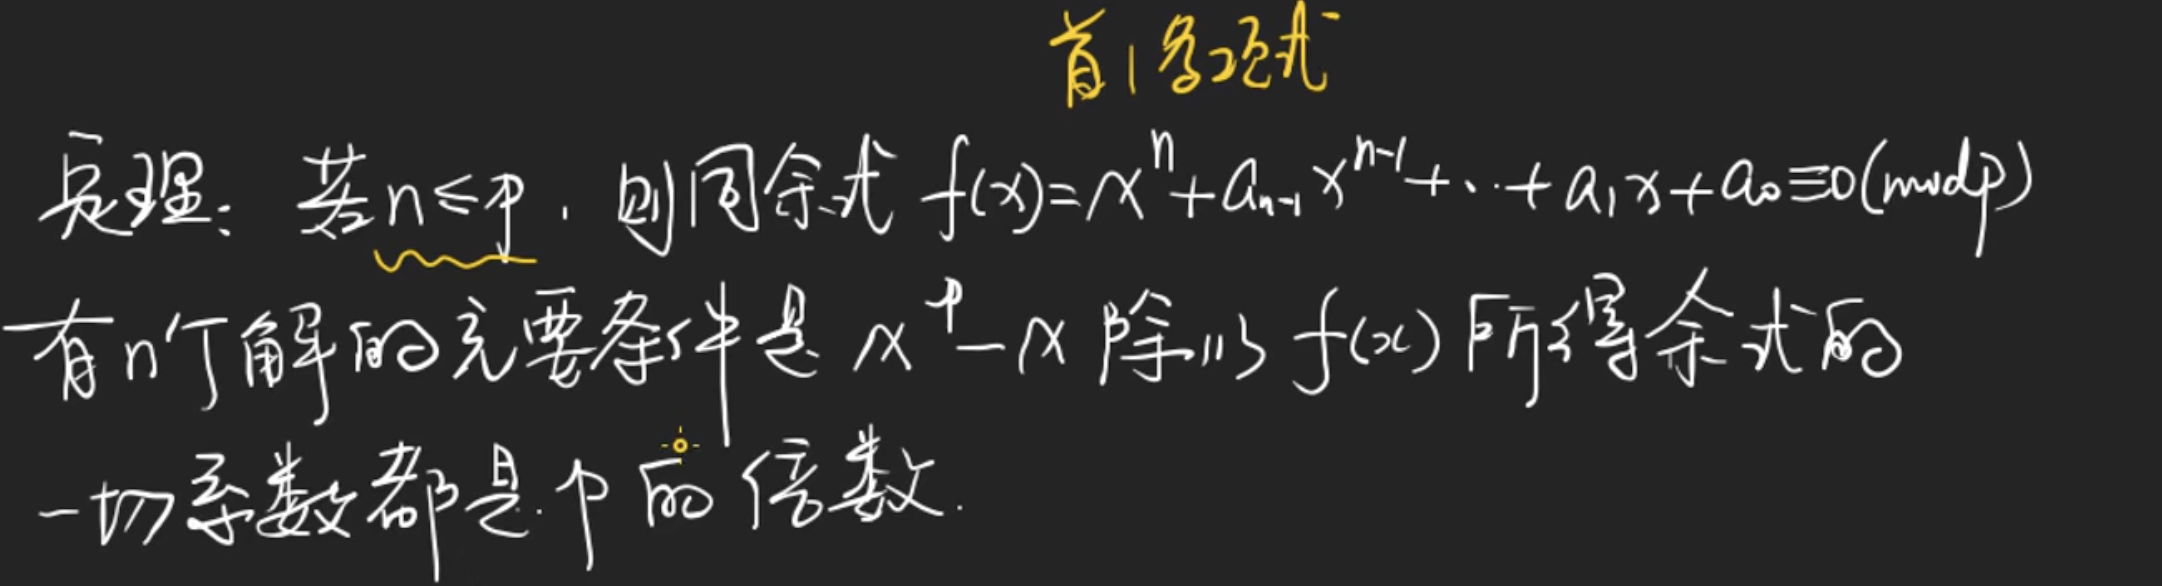 首1多项式
定理：若n≤p，则同余式 f(x)=xⁿ+aₙ₋₁xⁿ⁻¹+…+a₁x+a₀≡0(modp)
有n个解的充要条件是 xᵖ-x 除以 f(x) 所得余式的
一切系数都是p的倍数.